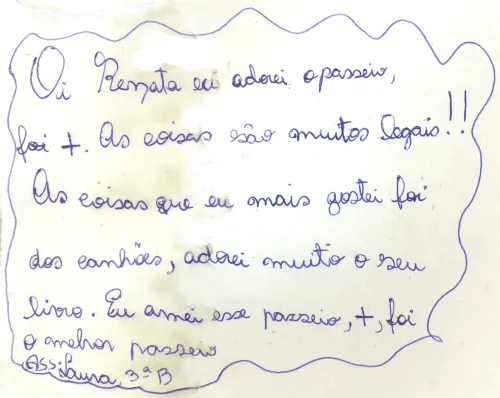 Oi Renzata eu adorei o passeio,
foi +. As coisas são muitos legais!!
As coisas que eu mais gostei foi
dos canhões, adorei muito o seu
livro. Eu amei esse passeio, +, foi
o melhor passeio
Ass: Laura, 3ª B